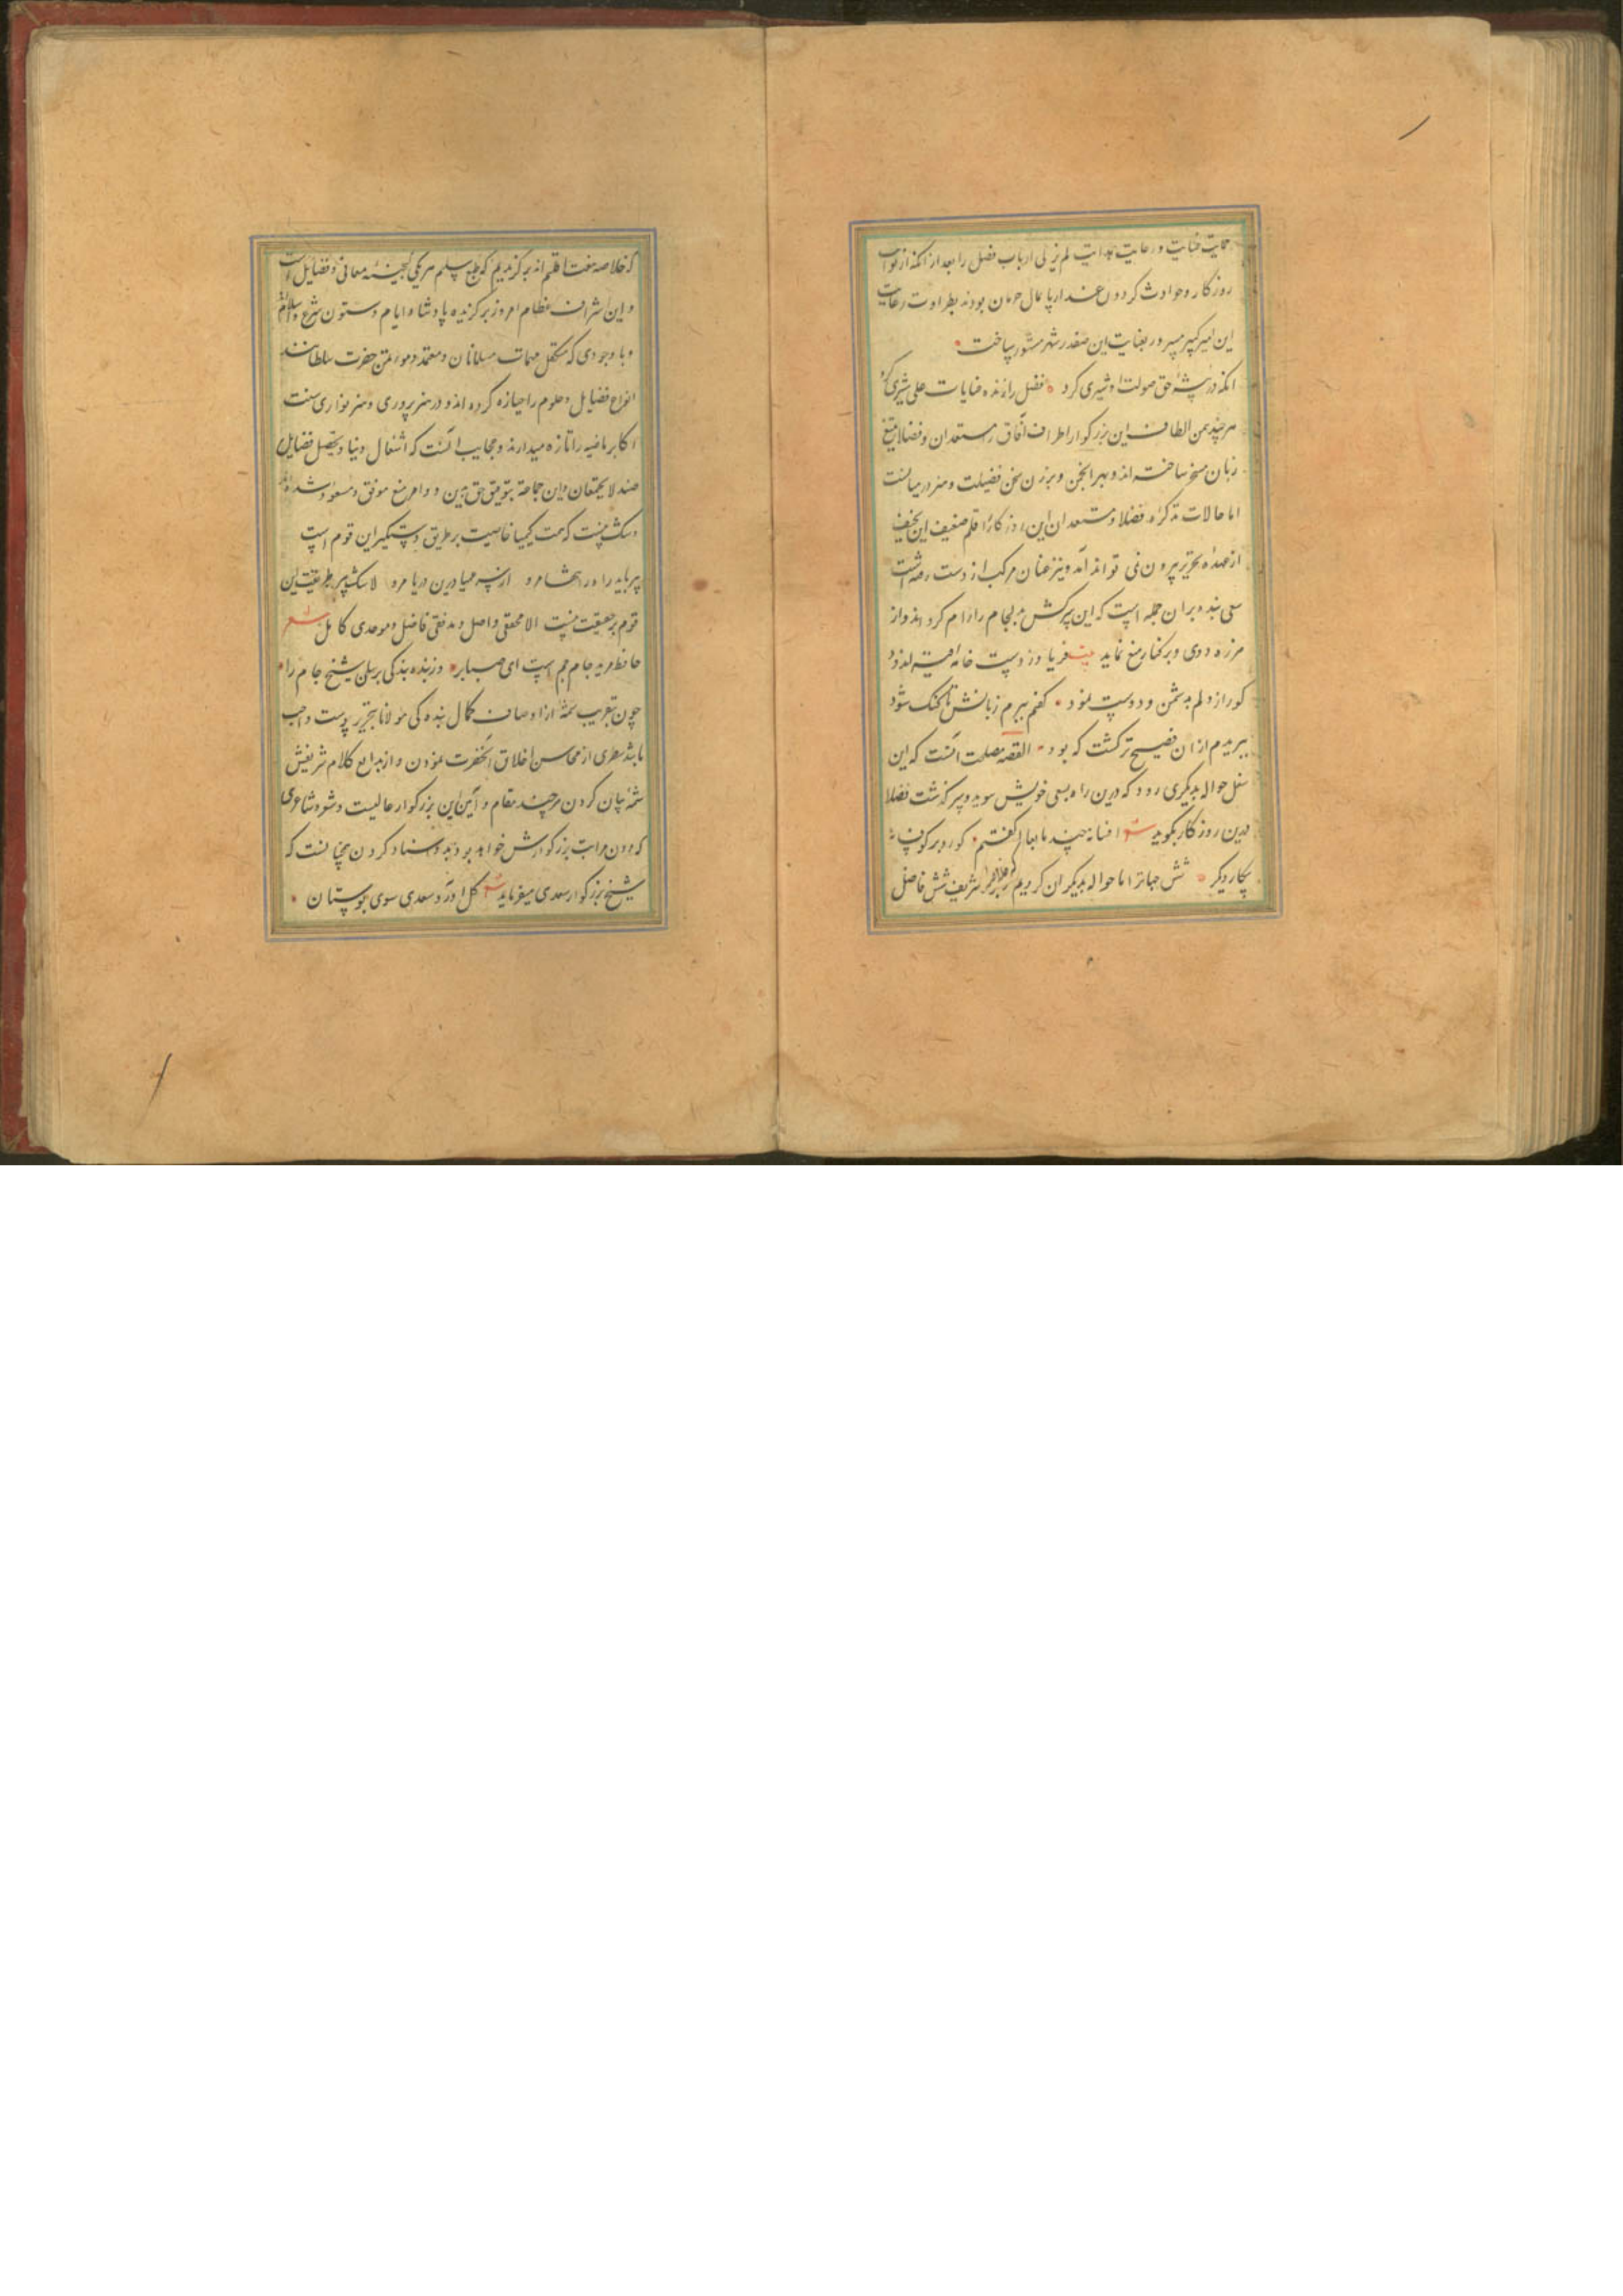 حمایت عنایت و رعایت هدایت لم یزلی ارباب فضل را بعد از آنکه از نوایب
روزگار و حوادث گردون غدار پایمال حرمان بودند بطراوت رعایت
این امیر کبیر سرور بعنایت این صفدر شهر مشهور ساخت
آنکه در بیشه حق صولت او شیری کرد فضل را زنده عنایات علی شیری کرد
هر چند یمن الطاف این بزرگوار اطراف آفاق را مستعدان و فضلا بتیغ
زبان مسخر ساخته اند و بهر انجمن و برزن سخن فضیلت و هنر در میانست
اما حالات تذکره فضلا و مستعدان این روزگار را قلم ضعیف این نحیف
از عهده تحریر بیرون نمی تواند آمد و نیز عنان مرکب از دست رفته است
سعی بنده بر آن جمله است که این سرکش بد لجام را رام کرداند و از
هرزه دوی و بر کنار منع نماید بیت فریاد ز دست خامه قیر اندود
کو راز دلم بدشمن و دوست نمود گفتم ببرم زبانش تا گنگ شود
ببریدم از آن فصیح تر گشت که بود القصه مصلحت آنست که این
شغل حواله بدیگری رود که درین راه بسعی خویش بپوید و سرگذشت فضلا
درین روزگار بگوید شعر افسانه چند ما بعالم گفتیم گو درد سر کوفسانه
بکار دیگر شش جهاترا اما حواله بدیگران کردیم از شریف شش فاضل
که خلاصه هفت اقلیم اند برگزیدیم که طبع سلیم هر یکی گنجینه معانی و فضایل است
و این اشراف عظام امروز برگزیده پادشاه ایام و ستون شرع و اسلام
و با وجودی که متکفل مهمات مسلمانان و معتمد و مؤتمن حضرت سلطانند
انواع فضایل و علوم را حیازه کرده اند و در هنر پروری و هنر نوازی سنت
اکابر ماضیه را تازه میدارند و عجایب آنست که اشغال دنیا و تحصیل فضایل
ضد لا یجتمعان و این جماعت بتوفیق حق بدین دو امر منیع موفق و مسعود شده اند
و شک نیست که همت کیمیا خاصیت بر طریق دستگیر این قوم است
پیر باید راه را تنها مرو از سر عمیا درین دریا مرو لا شک پیر طریقت این
قوم بر حقیقت نیست الا محققی واصل و مدققی فاضل و موحدی کامل شعر
حافظ مرید جام جم است ای صبا برو وز بنده بندگی برسان شیخ جام را
چون بتقریب شمه از اوصاف کمال بنده گی مولانا بتحریر پیوست واجب
باشد سطری از محاسن اخلاق آنحضرت نمودن و از بدایع کلام شریفش
شمه بیان کردن هر چند مقام و آیین این بزرگوار عالیست و شعر و شاعری
که دون مراتب بزرگوارش خواهد بود بدو اسناد کردن همچنانست که
شیخ بزرگوار سعدی میفرماید شعر گل آورد سعدی سوی بوستان